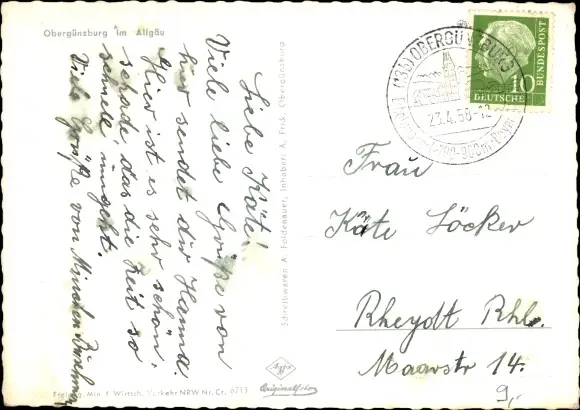 Obergünzburg im Allgäu
Liebe Käte!
Viele liebe Grüße von
hier sendet dir Hanna.
Hier ist es sehr schön,
schade, das die Zeit so
schnell umgeht.
Viele Grüße von
Schreibwaren A. Inhaber: A. Obergünzburg
(13b) OBERGÜNZBURG
23.4.58-12
10
DEUTSCHE
BUNDESPOST
Frau
Käte Löcker
Rheydt Rhl.
Maarstr 14.
9,-
Agfa
Originalfoto
Freigeg. Min. f. Wirtsch. Verkehr NRW Nr. Cr. 6713